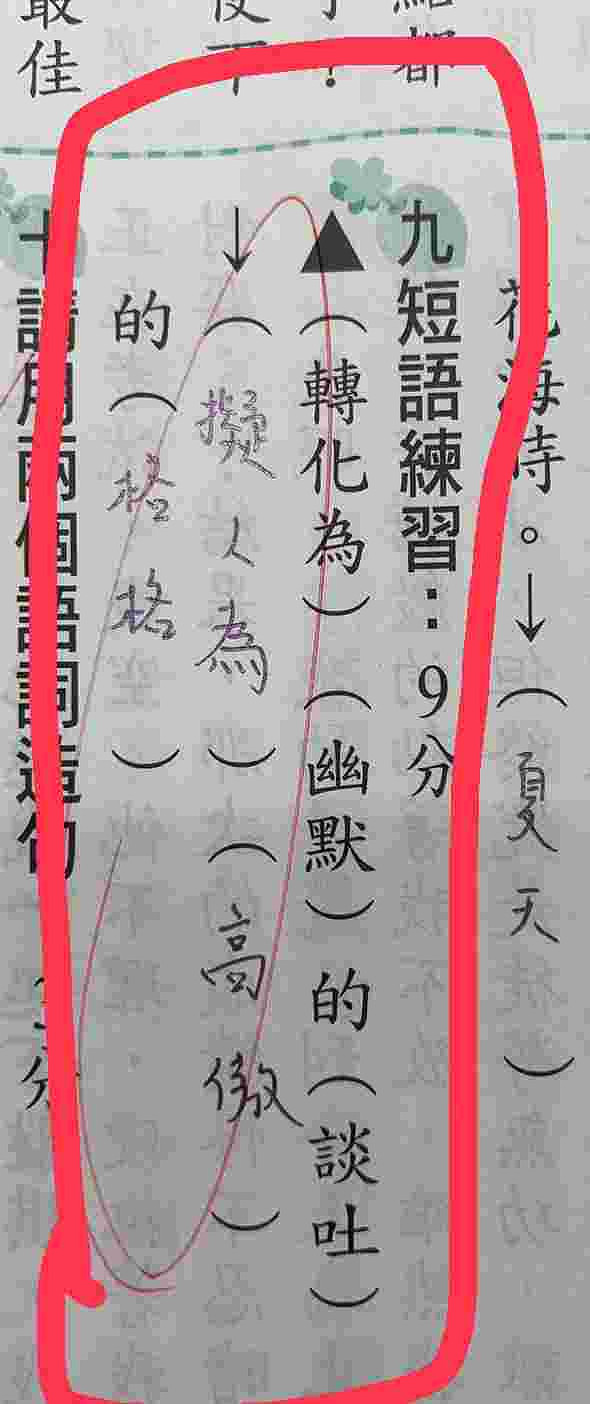 花海時。→(夏天)
九 短語練習：9分
▲(轉化為)(幽默)的(談吐)
→(擬人為)(高傲)
的(格格)
十 請用兩個語詞造句